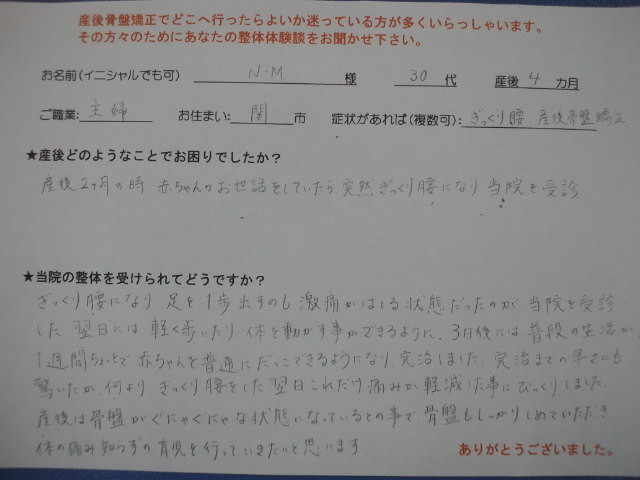 産後骨盤矯正でどこへ行ったらよいか迷っている方が多くいらっしゃいます。
その方々のためにあなたの整体体験談をお聞かせ下さい。
お名前(イニシャルでも可) N・M 様 30 代 産後 4 カ月
ご職業: 主婦 お住まい: 関 市 症状があれば(複数可): ぎっくり腰 産後骨盤矯正
★産後どのようなことでお困りでしたか？
産後2ヶ月の時 赤ちゃんのお世話をしていたら突然ぎっくり腰になり 当院を受診
★当院の整体を受けられてどうですか？
ぎっくり腰になり 足を1歩出すのも激痛がはしる状態だったのが 当院を受診
した翌日には軽く歩いたり体を動かす事ができるように、3日後には普段の生活が、
1週間ちょっとで赤ちゃんを普通にだっこできるようになり、完治しました。完治までの早さにも
驚いたが、何より、ぎっくり腰をした翌日これだけ痛みが軽減した事にびっくりしました。
産後は骨盤がぐにゃぐにゃな状態になっているとの事で、骨盤もしっかりしめていただき
体の痛み知らずの育児を行っていきたいと思います
ありがとうございました。